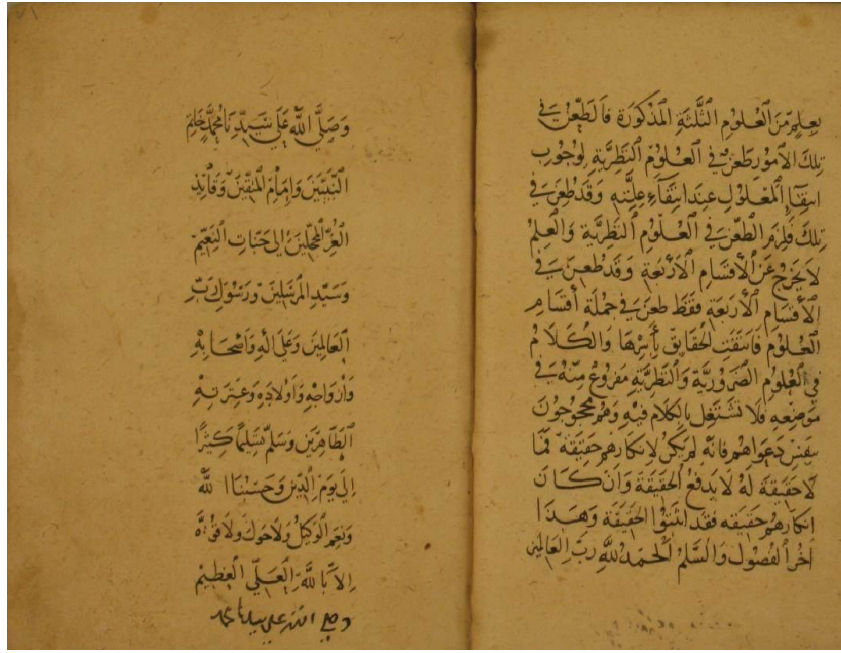 بعلم من العلوم الثلثة المذكورة فالطعن في
تلك الامور طعن في العلوم النظرية لوجوب
انتفاء المعلول عند انتفاء علته وقد طعن في
تلك فلزم الطعن في العلوم النظرية والعلم
لا يخرج عن الأقسام الأربعة وقد طعن في
الأقسام الأربعة فقط طعن في جملة أقسام
العلوم فانتفت الحقايق بأسرها والكلام
في العلوم الضرورية والنظرية مفروغ منه في
موضعه فلا نشتغل بالكلام فيه وهم محجوجون
بنفس دعواهم فانه لم يكن لانكارهم حقيقة فما
لا حقيقة له لا يدفع الحقيقة وان كان
انكارهم حقيقه فقد اثبتوا الحقيقة وهذا
اخر الفصول والسلم الحمد لله رب العالمين
وصلى الله على سيدنا محمد خاتم
النبيين وامام المتقين وقائد
الغر المحجلين الى جنات النعيم
وسيد المرسلين ورسول رب
العالمين وعلى اله واصحابه
وازواجه واولاده وعترته
الطاهرين وسلم تسليما كثيرا
الى يوم الدين وحسبنا الله
ونعم الوكيل ولا حول ولا قوة
الا بالله العلي العظيم
وصلى الله على سيدنا محمد